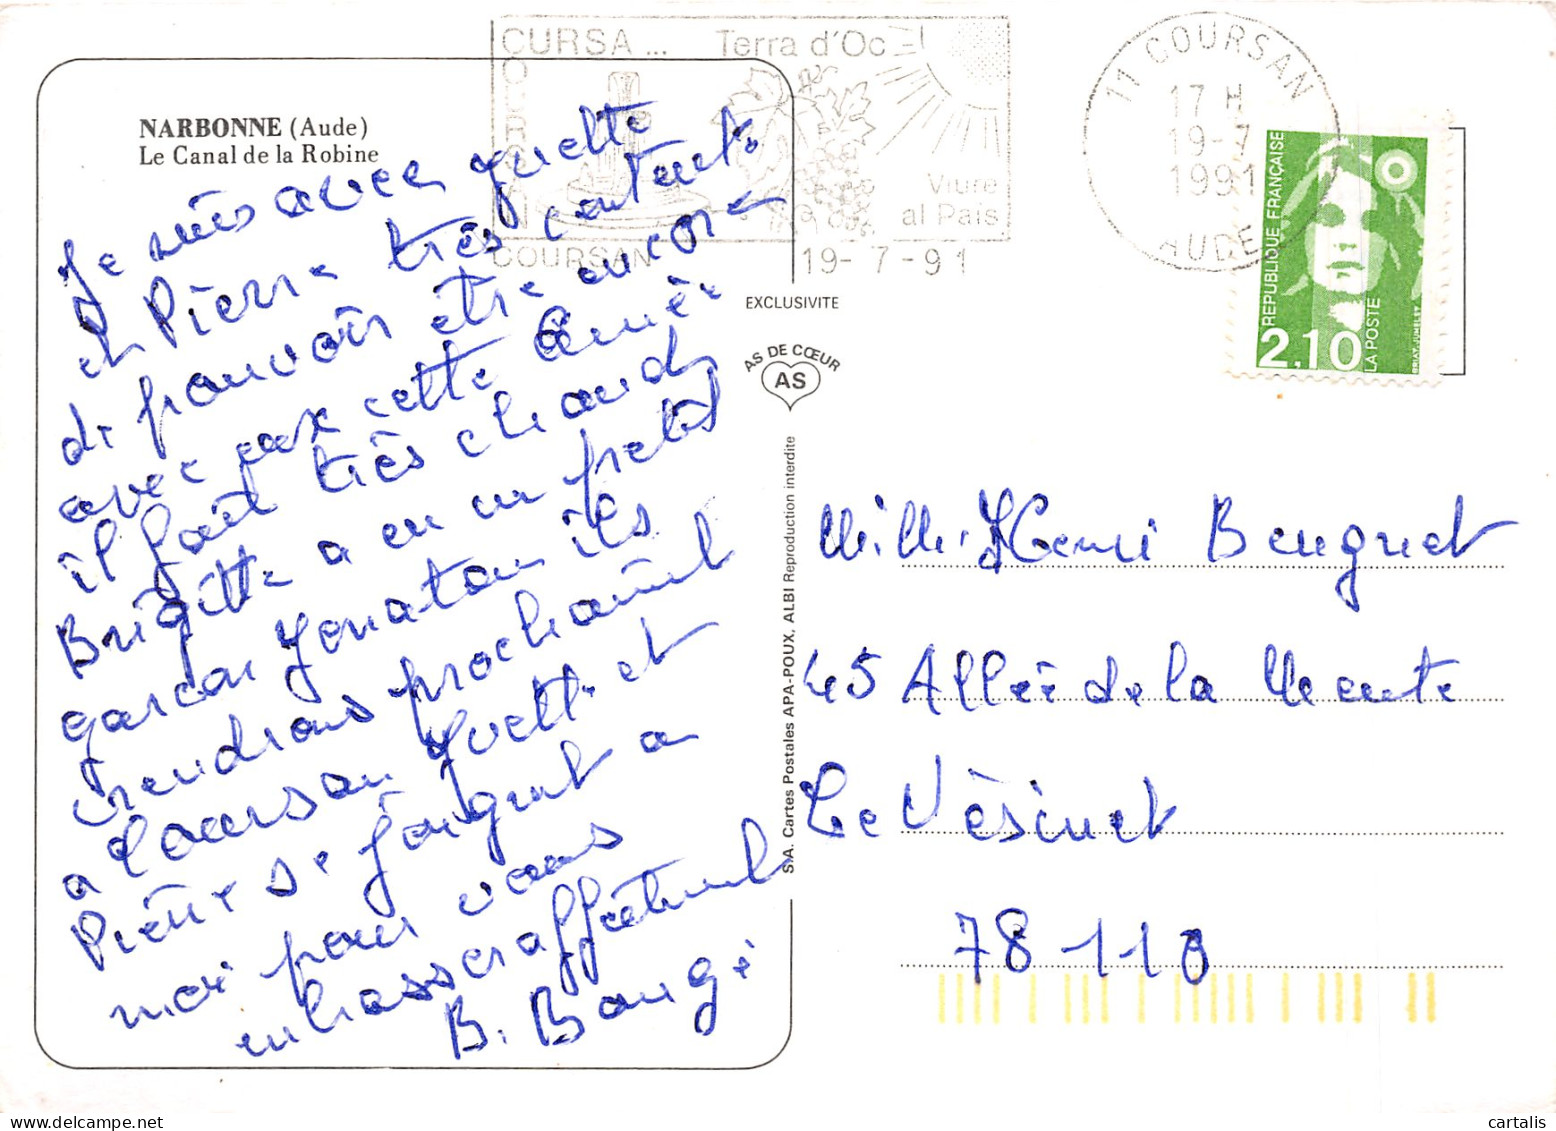 CURSA ... Terra d'Oc
COURSAN
Viure
al Païs
COURSAN 19-7-91
11 COURSAN
17 H
19-7
1991
AUDE
REPUBLIQUE FRANÇAISE
2,10
LA POSTE
NARBONNE (Aude)
Le Canal de la Robine
EXCLUSIVITE
AS DE CŒUR
AS
S.A. Cartes Postales APA-POUX, ALBI Reproduction interdite
Je suis avec yvette
et Pierre très contente
de pouvoir être encore
avec eux cette année
il fait très chaud
Brigitte a eu un petit
garçon Jonatan ils
viendrons prochainet
a Coursan Yvette et
Pierre se joignent a
moi pour vous
embrasser affectueuset
B. Bougé
Mlle Henri Beugnet
45 Allée de la Meute
Le Vésinet
78110
cartalis